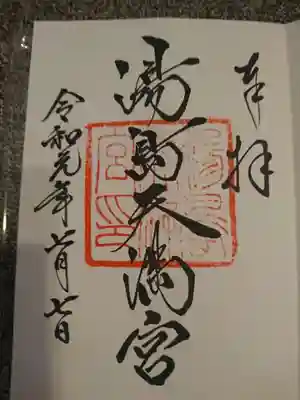 奉拝
湯島天満宮
令和元年七月七日